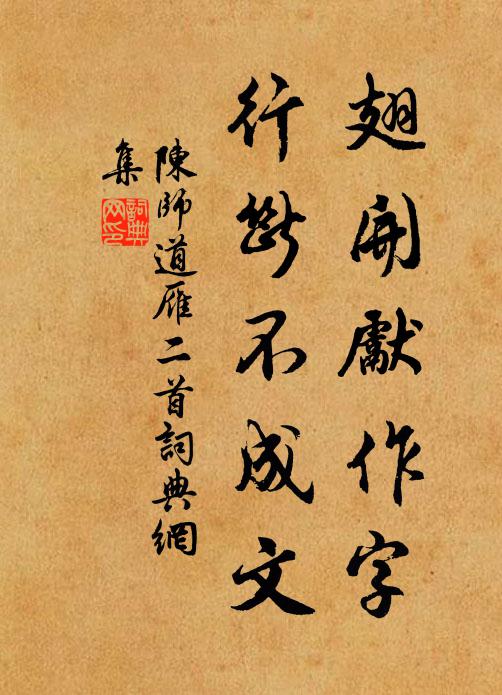 翅開獻作字
行斷不成文
陳師道雁二首詞典網
集
詞典網印